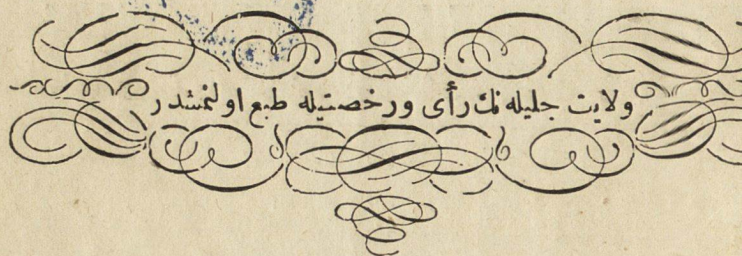 ولايت جليله نك رأى ورخصتيله طبع اولنمشدر